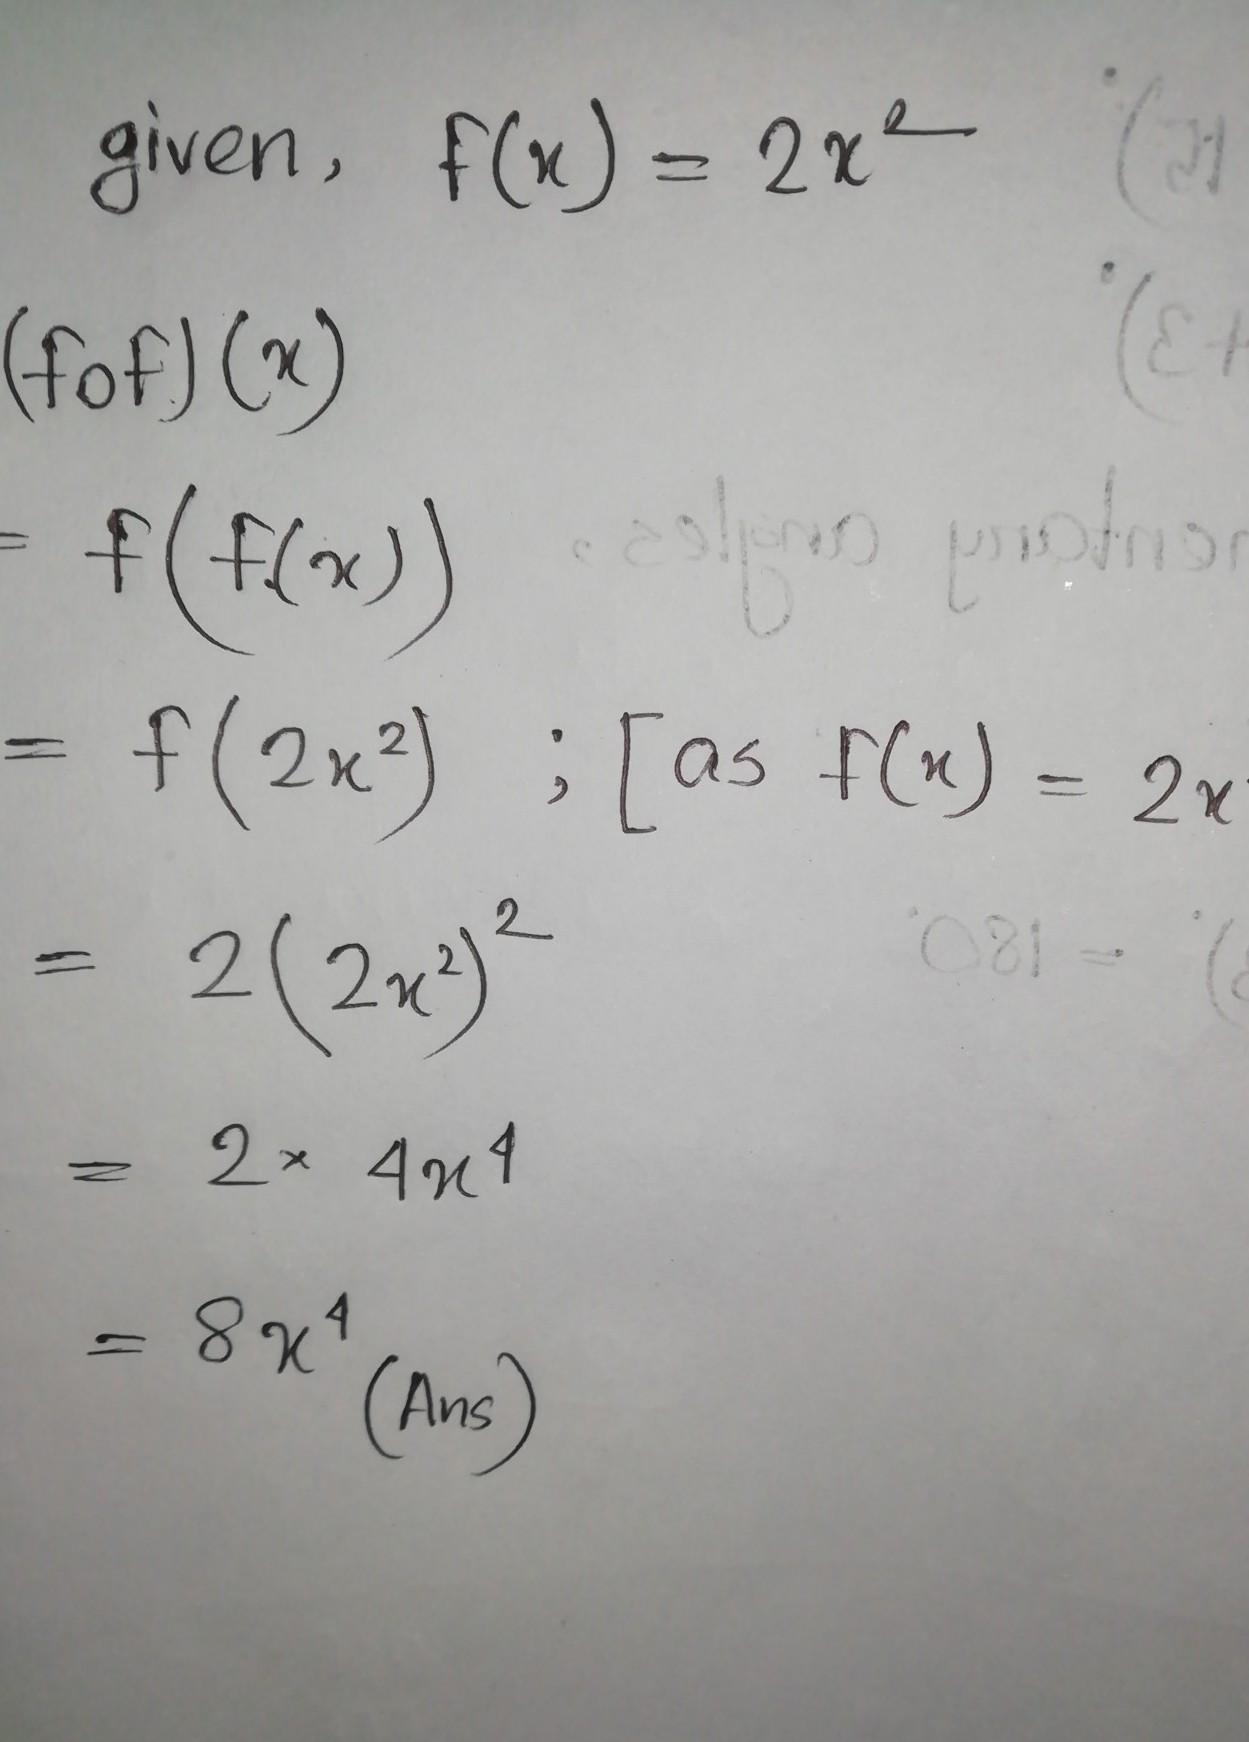 given, f(x) = 2x²
(fof)(x)
= f(f(x))
= f(2x²) ; [as f(x) = 2x
= 2(2x²)²
= 2 × 4x⁴
= 8x⁴ (Ans)